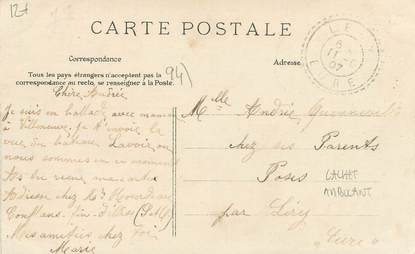 12+
CARTE POSTALE
LE
6
11
07
EURE
Correspondance
Adresse
Tous les pays étrangers n'acceptent pas la
correspondance au recto, se renseigner à la Poste.
94)
Chère Andrée
Je suis en ballade avec maman
à Villeneuve. Je t'envoie la
vue du bateau Lavoir où
nous sommes en ce moment
Adresse chez Md
Conflans fin d'Oise (S&O)
Mes amitiés chez toi
Marie
Melle Andrée
chez ses Parents
Poses
par Léry
"Eure"
CACHET
AMBULANT